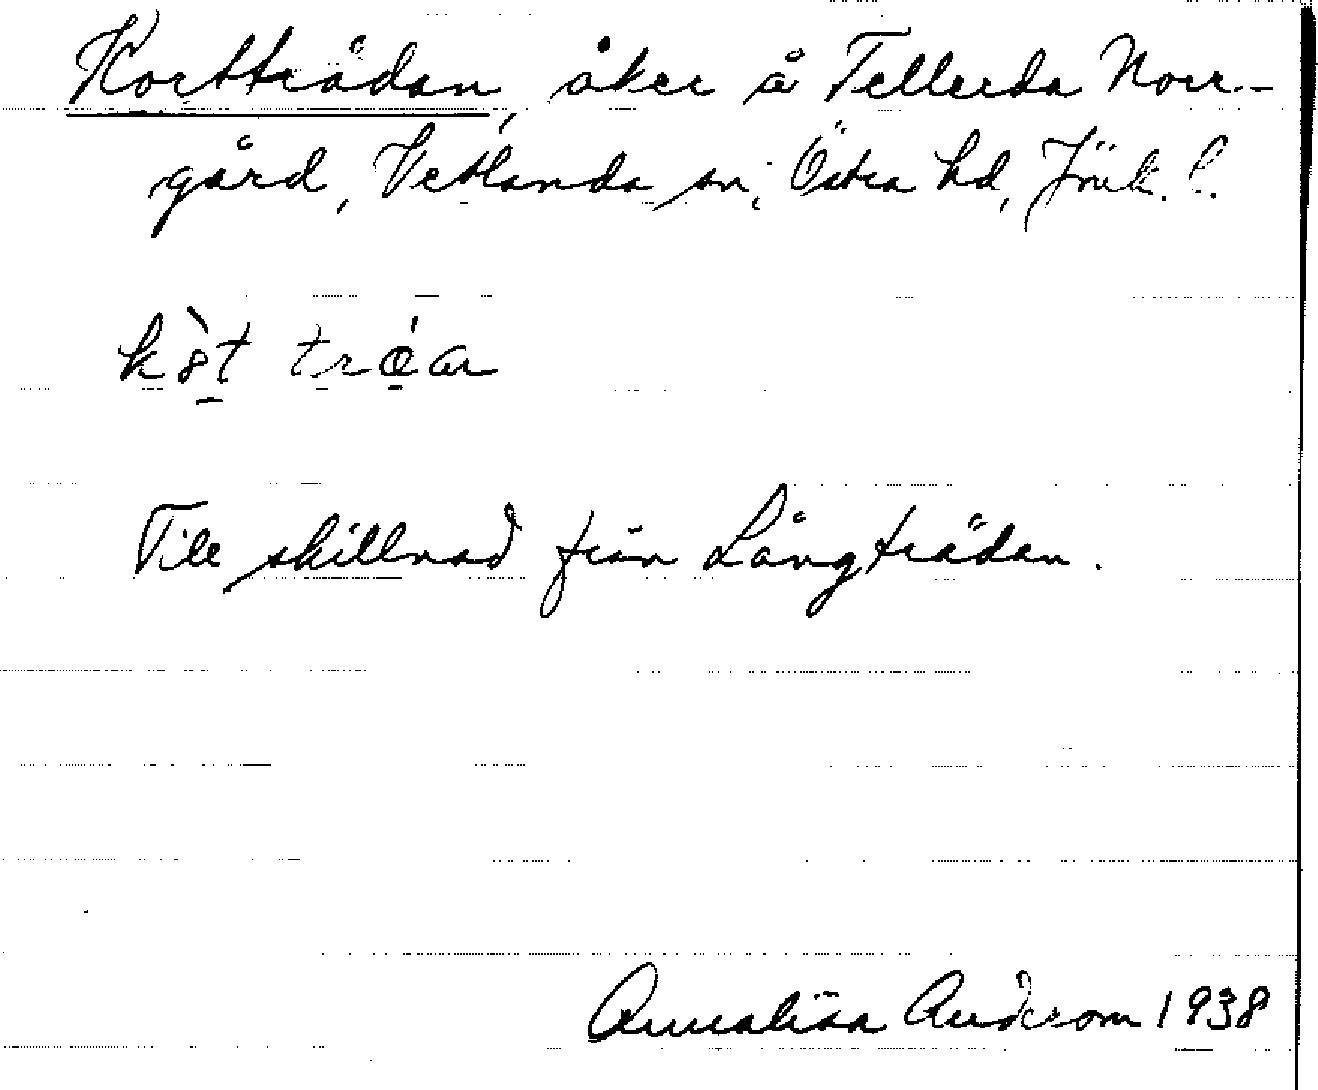 Kortträdan, åker å Tellerda Norr-
gård, Vetlanda sn, Östra hd, Jönk. l.
Till skillnad från Långträdan.
Annalisa Anderson 1938